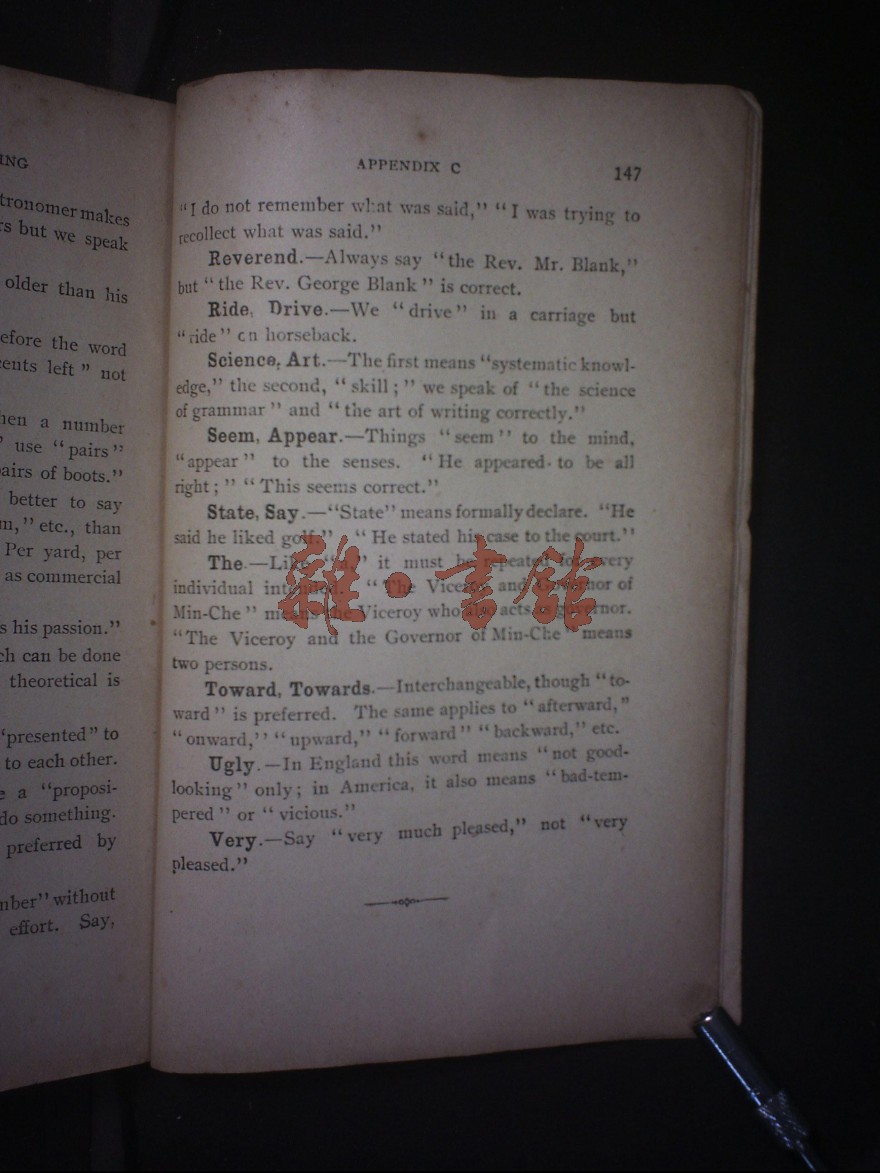 ING
tronomer makes
rs but we speak
older than his
efore the word
cents left" not
hen a number
use "pairs"
airs of boots."
better to say
m," etc., than
Per yard, per
as commercial
s his passion."
ch can be done
theoretical is
"presented" to
to each other.
e a "proposi-
do something.
preferred by
nber" without
effort. Say,
APPENDIX C 147
"I do not remember what was said," "I was trying to
recollect what was said."
Reverend.—Always say "the Rev. Mr. Blank,"
but "the Rev. George Blank" is correct.
Ride, Drive.—We "drive" in a carriage but
"ride" on horseback.
Science, Art.—The first means "systematic knowl-
edge," the second, "skill;" we speak of "the science
of grammar" and "the art of writing correctly."
Seem, Appear.—Things "seem" to the mind,
"appear" to the senses. "He appeared to be all
right;" "This seems correct."
State, Say.—"State" means formally declare. "He
said he liked golf." "He stated his case to the court."
The.—Like "a," it must be repeated for every
individual intended. "The Viceroy and Governor of
Min-Che" means the Viceroy who also acts as governor.
"The Viceroy and the Governor of Min-Che" means
two persons.
Toward, Towards.—Interchangeable, though "to-
ward" is preferred. The same applies to "afterward,"
"onward," "upward," "forward" "backward," etc.
Ugly.—In England this word means "not good-
looking" only; in America, it also means "bad-tem-
pered" or "vicious."
Very.—Say "very much pleased," not "very
pleased."
雜·書館